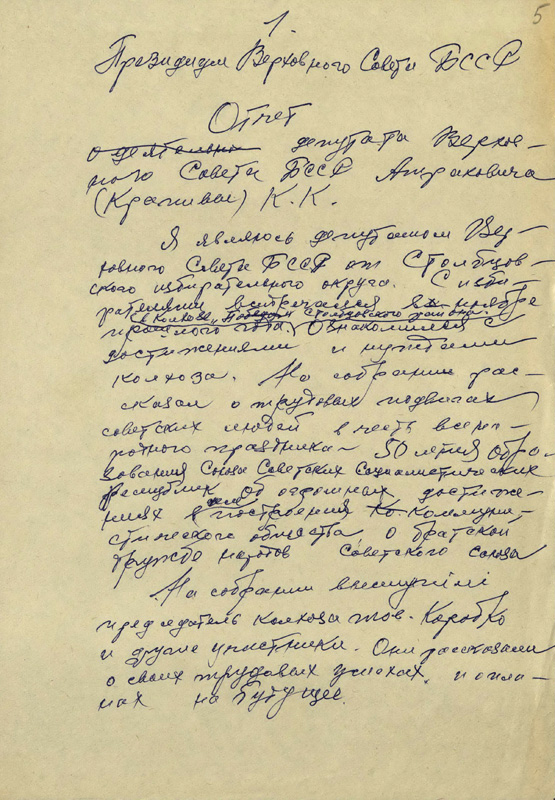 1.
5
Президиум Верховного Совета БССР
Отчет
о деятельн депутата Верхов-
ного Совета БССР Атраховича
(Крапивы) К. К.
Я являюсь депутатом Вер-
ховного Совета БССР от Столбцов-
ского избирательного округа. С изби-
рателями встречался в ноябре
в колхозе "Победа" Столбцовского района.
прошлого года. Ознакомился с
достижениями и нуждами
колхоза. На собрании рас-
сказал о трудовых подвигах
советских людей в честь всена-
родного праздника - 50 летия обра-
зования Союза Советских Социалистических
республик, об огромных достиже-
ниях в построении коммуни-
стического общества, о братской
дружбе народов Советского Союза
На собрании выступили
председатель колхоза тов. Коробко
и другие участники. Они рассказали
о своих трудовых успехах, и пла-
нах на будущее.